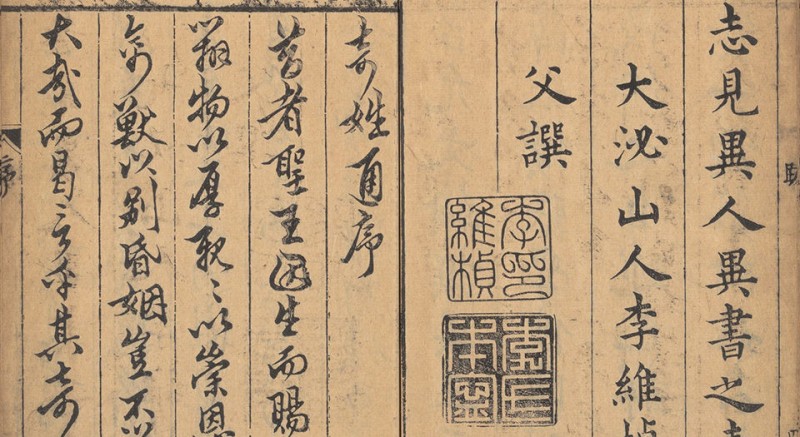 志見異人異書之
大泌山人李維
父譔
李印維楨
奇姓通序
昔者聖王因生而賜
物以厚親〻以崇恩
禽獸以別昏姻豈不
大哉而曷言乎其奇
序